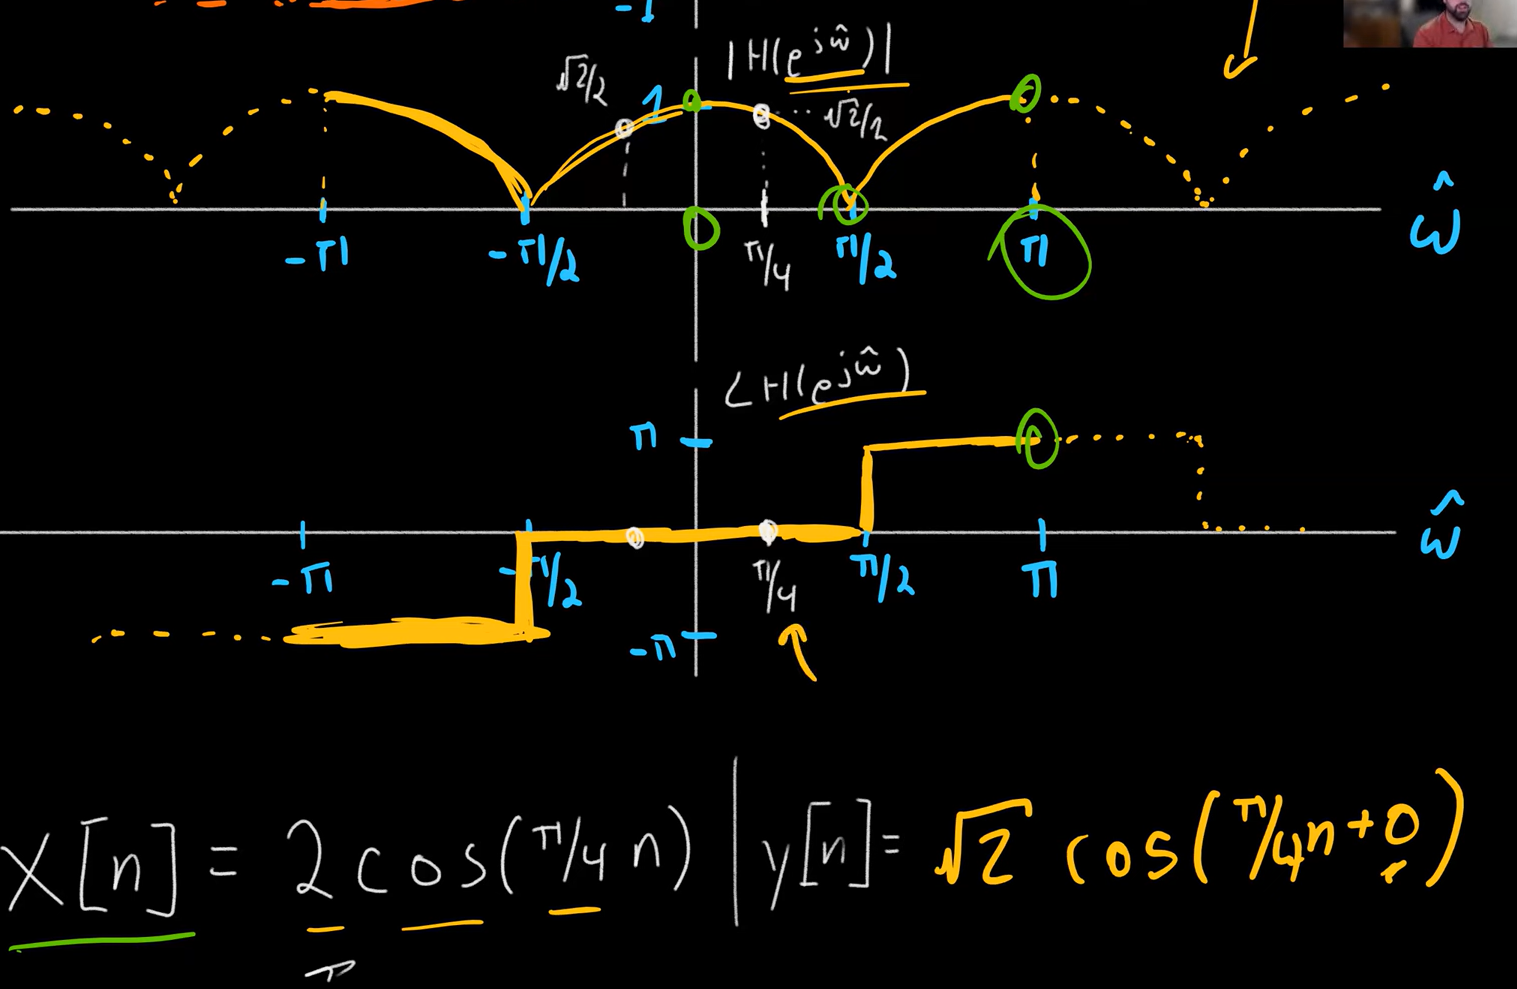 -1
|H(e^{jω̂})|
√2/2
1
√2/2
-π
-π/2
0
π/4
π/2
π
ω̂
∠H(e^{jω̂})
π
ω̂
-π
-π/2
π/4
π/2
π
-π
x[n] = 2 cos(π/4 n) | y[n] = √2 cos(π/4 n + 0)